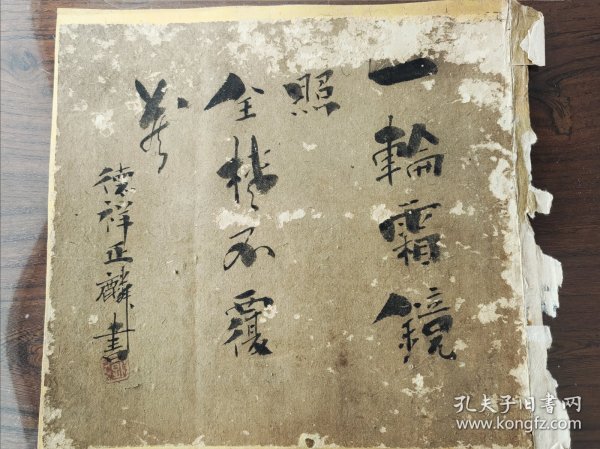 一輪霜鏡
照
全機不覆
藏
德祥正麟書
孔夫子旧书网
www.kongfz.com